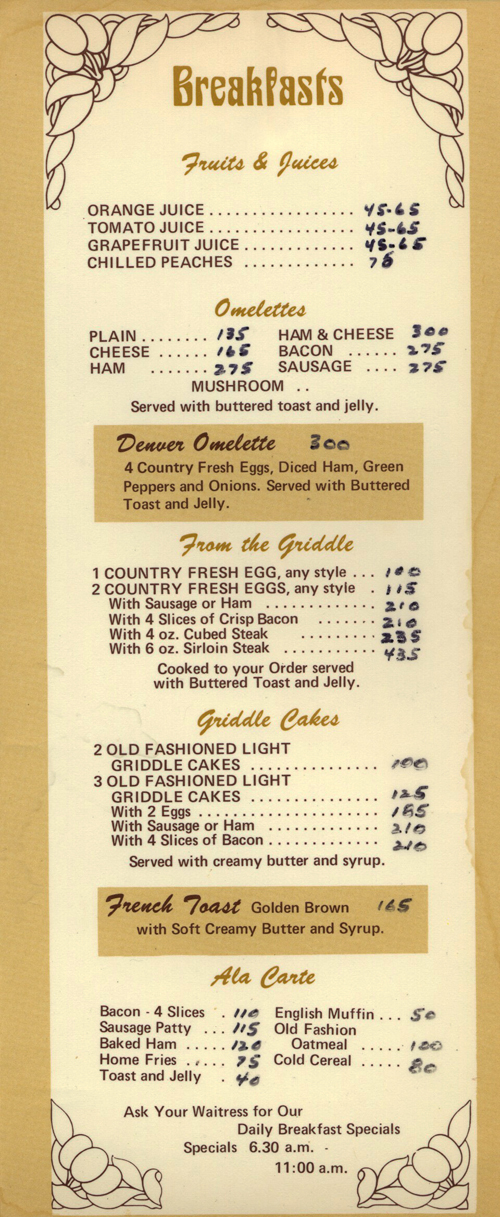 Breakfasts
Fruits & Juices
ORANGE JUICE ................. 45-65
TOMATO JUICE ................. 45-65
GRAPEFRUIT JUICE ............. 45-65
CHILLED PEACHES ............. 75
Omelettes
PLAIN ........ 135 HAM & CHEESE 300
CHEESE ...... 165 BACON ...... 275
HAM ....... 275 SAUSAGE .... 275
MUSHROOM ..
Served with buttered toast and jelly.
Denver Omelette 300
4 Country Fresh Eggs, Diced Ham, Green
Peppers and Onions. Served with Buttered
Toast and Jelly.
From the Griddle
1 COUNTRY FRESH EGG, any style ... 100
2 COUNTRY FRESH EGGS, any style . 115
With Sausage or Ham ............. 210
With 4 Slices of Crisp Bacon ....... 210
With 4 oz. Cubed Steak ............ 235
With 6 oz. Sirloin Steak ........... 435
Cooked to your Order served
with Buttered Toast and Jelly.
Griddle Cakes
2 OLD FASHIONED LIGHT
GRIDDLE CAKES ............... 100
3 OLD FASHIONED LIGHT
GRIDDLE CAKES ............... 125
With 2 Eggs ..................... 185
With Sausage or Ham ............. 210
With 4 Slices of Bacon ............. 210
Served with creamy butter and syrup.
French Toast Golden Brown 165
with Soft Creamy Butter and Syrup.
Ala Carte
Bacon - 4 Slices . 110 English Muffin ... 50
Sausage Patty ... 115 Old Fashion
Baked Ham ..... 120 Oatmeal ..... 100
Home Fries ..... 75 Cold Cereal ..... 80
Toast and Jelly . 40
Ask Your Waitress for Our
Daily Breakfast Specials
Specials 6.30 a.m. -
11:00 a.m.